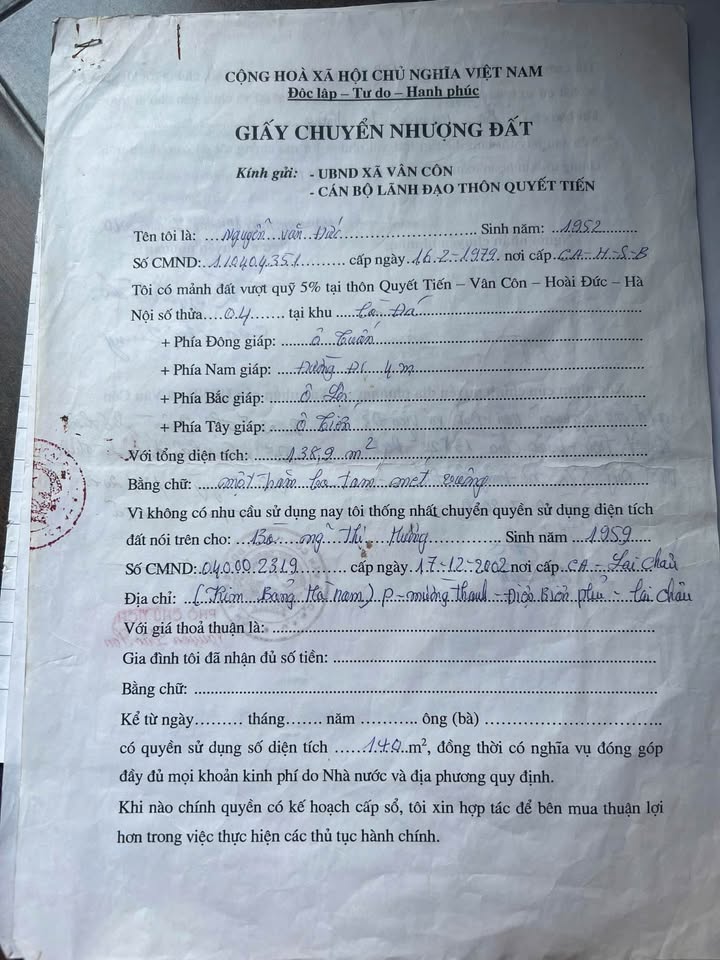 CỘNG HOÀ XÃ HỘI CHỦ NGHĨA VIỆT NAM
Độc lập – Tư do – Hanh phúc
GIẤY CHUYỂN NHƯỢNG ĐẤT
Kính gửi: - UBND XÃ VÂN CÔN
- CÁN BỘ LÃNH ĐẠO THÔN QUYẾT TIẾN
Tên tôi là: ...Nguyễn văn Đức... Sinh năm: ...1952...
Số CMND: 110404351 cấp ngày 16.2.-1979. nơi cấp CA-H-S-B
Tôi có mảnh đất vượt quỹ 5% tại thôn Quyết Tiến – Vân Côn – Hoài Đức – Hà
Nội số thửa ...04... tại khu ... Đá ...
+ Phía Đông giáp: ...ô Tuấn...
+ Phía Nam giáp: ...Đường Đi 4m...
+ Phía Bắc giáp: ...ô ...
+ Phía Tây giáp: ...ô Tiến...
Với tổng diện tích: ...138,9 m²...
Bằng chữ: ...một trăm ba tám mét vuông...
Vì không có nhu cầu sử dụng nay tôi thống nhất chuyển quyền sử dụng diện tích
đất nói trên cho: ...Bà ng~ Thị Hường... Sinh năm ...1959...
Số CMND: 040002319 cấp ngày 17-12-2002 nơi cấp CA-Lai Châu
Địa chỉ: (Kim Bảng Hà nam) P-mường Thanh-Điện Biên phủ-Lai châu
Với giá thoả thuận là: ...
Gia đình tôi đã nhận đủ số tiền: ...
Bằng chữ: ...
Kể từ ngày......... tháng....... năm .......... ông (bà) ...
có quyền sử dụng số diện tích ......140..m², đồng thời có nghĩa vụ đóng góp
đầy đủ mọi khoản kinh phí do Nhà nước và địa phương quy định.
Khi nào chính quyền có kế hoạch cấp sổ, tôi xin hợp tác để bên mua thuận lợi
hơn trong việc thực hiện các thủ tục hành chính.